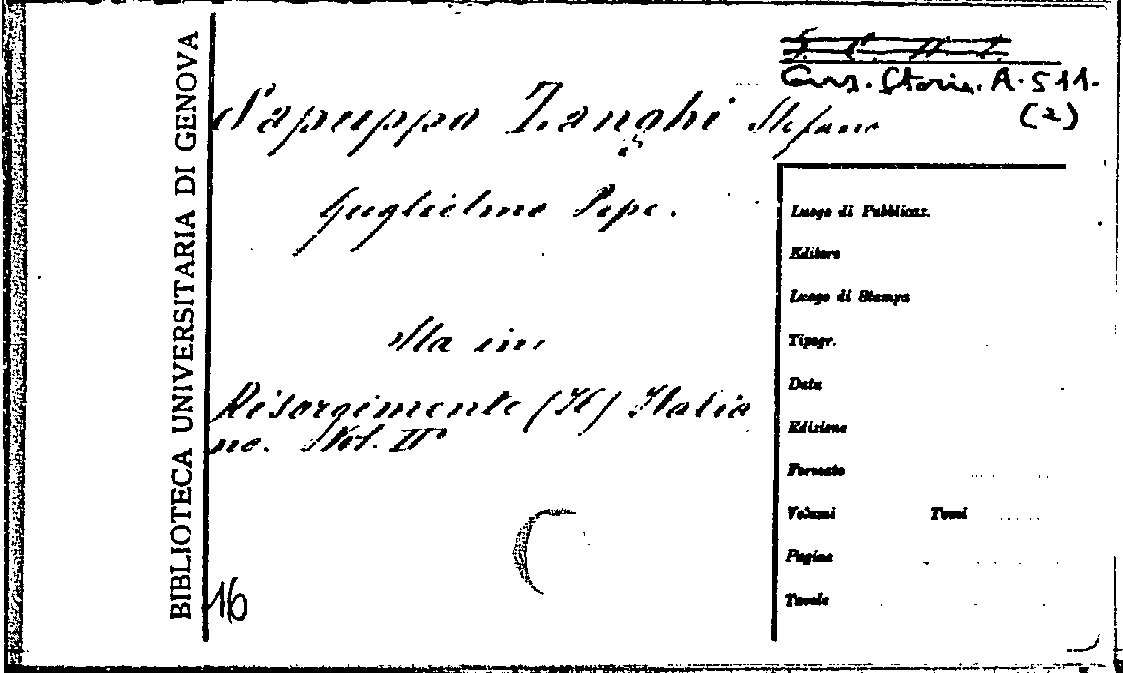 BIBLIOTECA UNIVERSITARIA DI GENOVA
Cons. Storia. A. 511.
(2)
Sapuppo Zanghi Stefano
Guglielmo Pepe.
Sta in
Risorgimento (Il) Italia
no. Vol. II°
16
Luogo di Pubblicaz.
Editore
Luogo di Stampa
Tipogr.
Data
Edizione
Formato
Volumi Tomi
Pagine
Tavole